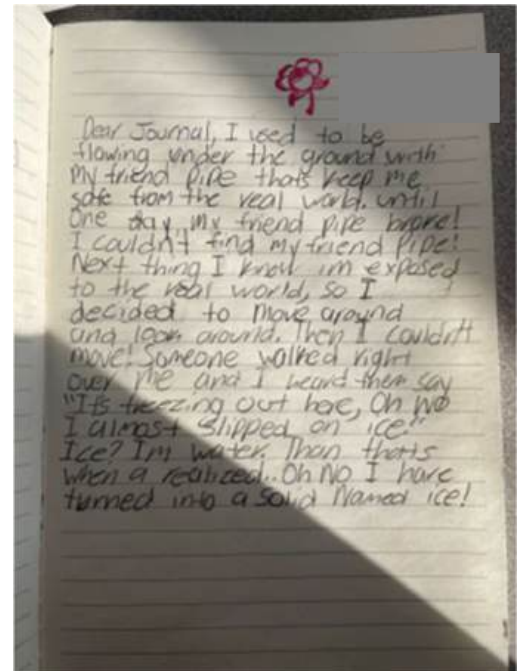 Dear Journal, I used to be
flowing under the ground with
my friend pipe thats keep me
safe from the real world. until
one day, my friend pipe broke!
I couldn't find my friend Pipe!
Next thing I know im exposed
to the real world, so I
decided to move around
and look around. Then I couldn't
move! Someone walked right
over me and I heard them say
"It's freezing out here, Oh No
I almost slipped on ice."
Ice? I'm water. Than thats
when a realized.. Oh No I have
turned into a solid Named ice!